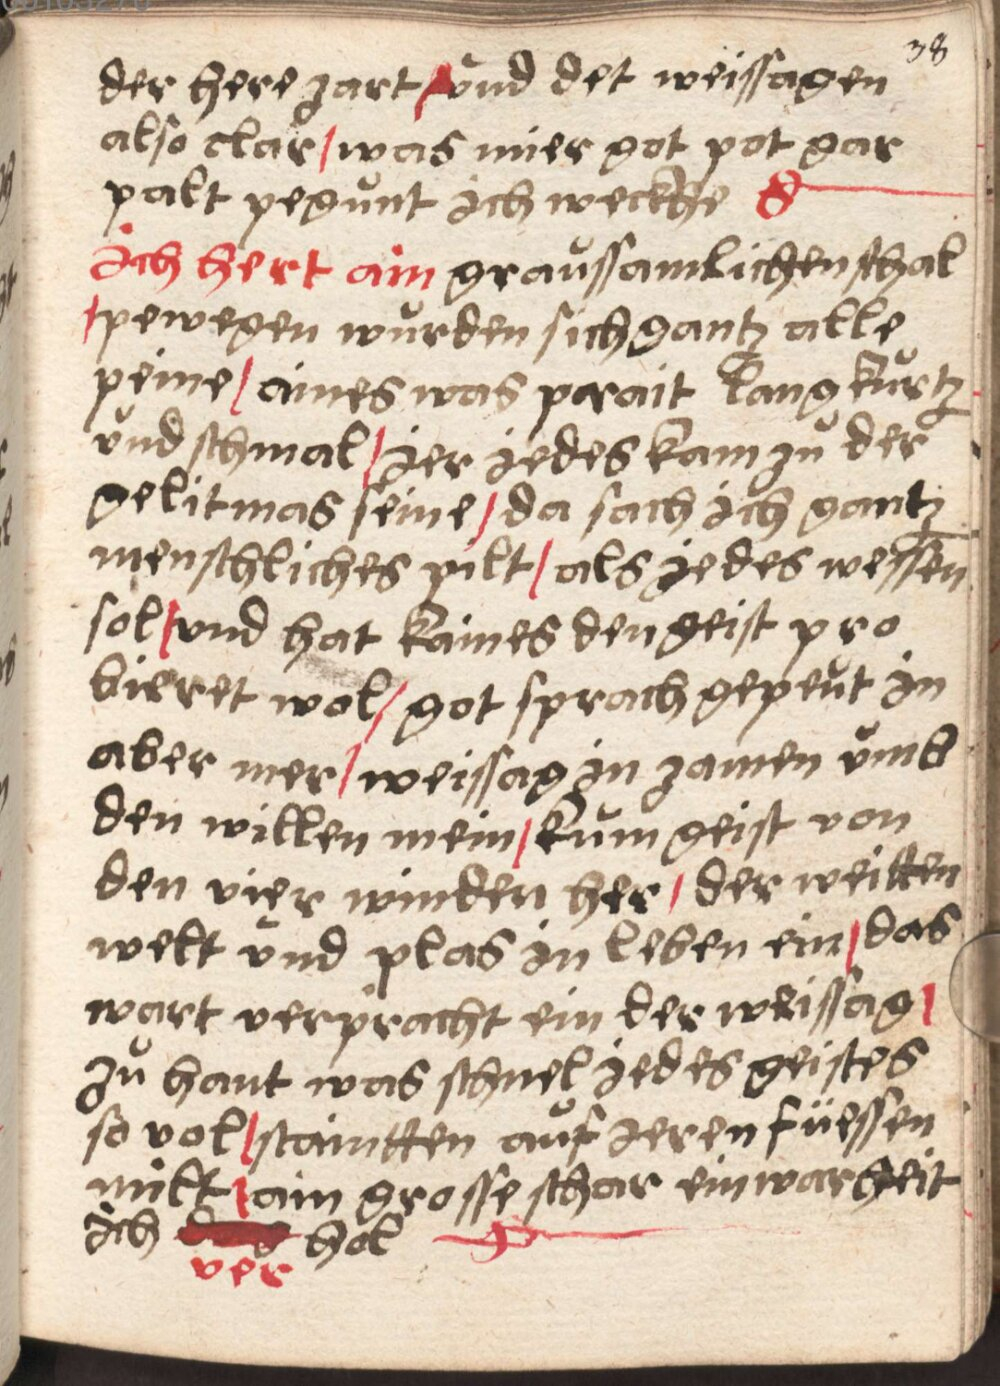 38
der here zart / vnd det weissagen
also clar / was mier got pot gar
palt pegunt ich weckhe
Ich hert ain graussamlichen schal
/ pewegen wurden sich gantz alle
peine / aines was prait lang kurtz
vnd schmal / ier iedes kam zu der
gelitmas seine / da sach ich gantz
menschliches pilt / als iedes wessen
sol / vnd hat kaines den geist pro
bieret wol / got sprach gepeut in
aber mer / weissag in zamen vmb
den willen mein / kum geist von
den vier winden her / der weitten
welt vnd plas in leben ein / das
wart verpracht ein der weissag /
zu hant was schnel iedes geistes
so vol / staintten auf ieren füessen
milt / ain grosse schar ein warheit
ich hol
ver